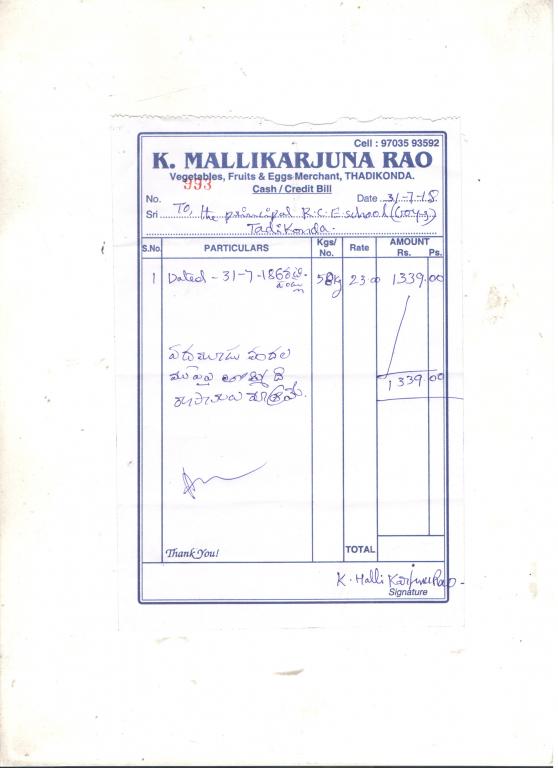 Cell : 97035 93592
K. MALLIKARJUNA RAO
Vegetables, Fruits & Eggs Merchant, THADIKONDA.
993
Cash / Credit Bill
No. Date 31-7-18
Sri To, the principal R.C.E school (Boys)
Tadikonda.
S.No. PARTICULARS Kgs/No. Rate AMOUNT Rs. Ps.
1 Dated - 31-7-18 kg 23 00 1339.00
పదమూడు వందల
ముప్పై
రూపాయలు మాత్రమే.
1339 00
Thank You! TOTAL
K. Malli Karjuna Rao
Signature